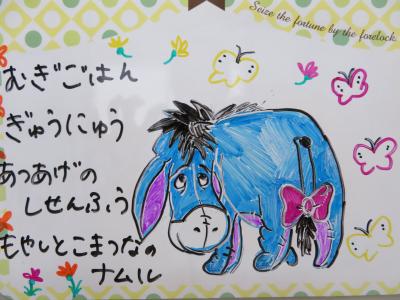 Seize the fortune by the forelock.
むぎごはん
ぎゅうにゅう
あつあげの
しせんふう
もやしとこまつなの
ナムル